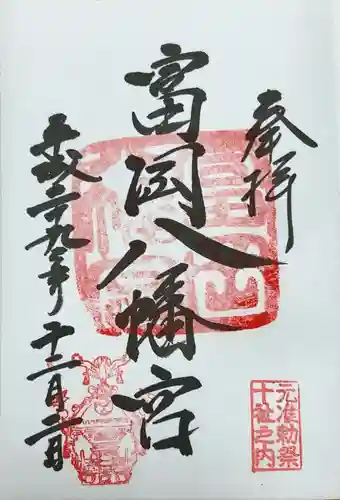 奉拝
富岡八幡宮
平成二十九年
十二月二日
元准勅祭
十社之内